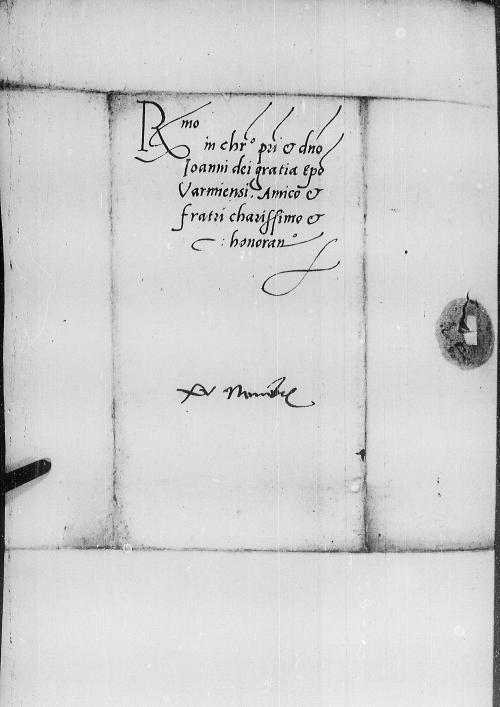 Rmo
in chro pri & dno
Ioanni dei gratia Epo
Varmiensi. Amico &
fratri charissimo &
: honorano